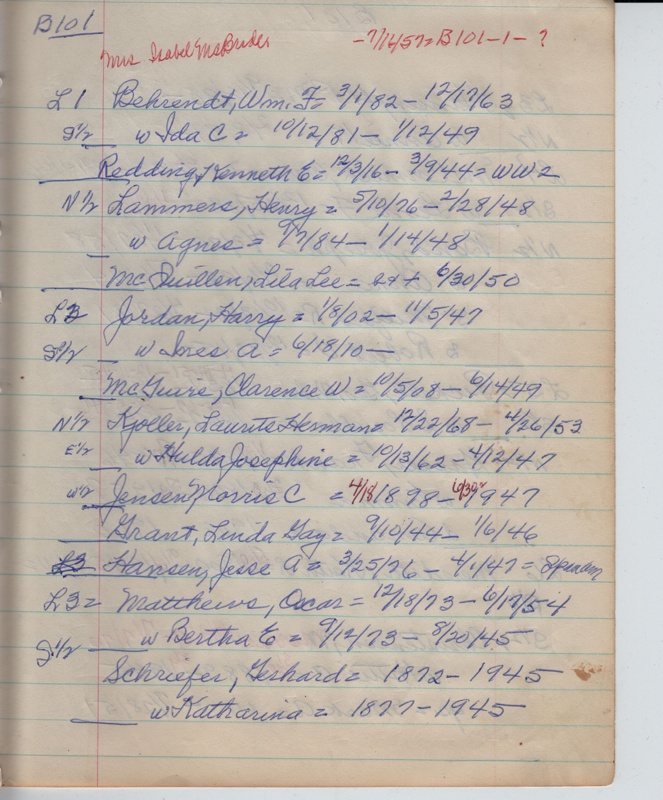 B101
Mrs Isabel McBride - 7/16/57 = B101-1- ?
L1 Behrendt, Wm. F = 3/1/82 - 12/17/63
S½ w Ida C = 10/12/81 - 1/12/49
Redding, Kenneth E = 12/3/16 - 3/9/44 = WW2
N½ Lammers, Henry = 5/10/76 - 2/28/48
w Agnes = /84 - 1/14/48
McQuillen, Lila Lee = 6/30/50
L2 Jordan, Harry = 1/8/02 - 11/5/47
S½ w Ines A = 6/18/10 -
McGuire, Clarence W = 10/5/08 - 6/14/49
N½ Kjoller, Laurits Herman = 12/22/68 - 4/26/53
E½ w Hulda Josephine = 10/13/62 - 4/12/47
W½ Jensen Morris C = 4/18/1898 - 1947
Grant, Linda Gay = 9/10/44 - 1/6/46
L3 Hansen, Jesse A = 3/25/76 - 4/1/47 =
L3 = Matthews, Oscar = 12/18/73 - 6/17/54
S½ w Bertha E = 9/12/73 - 8/20/45
Schriefer, Gerhard = 1872 - 1945
w Katharina = 1877 - 1945